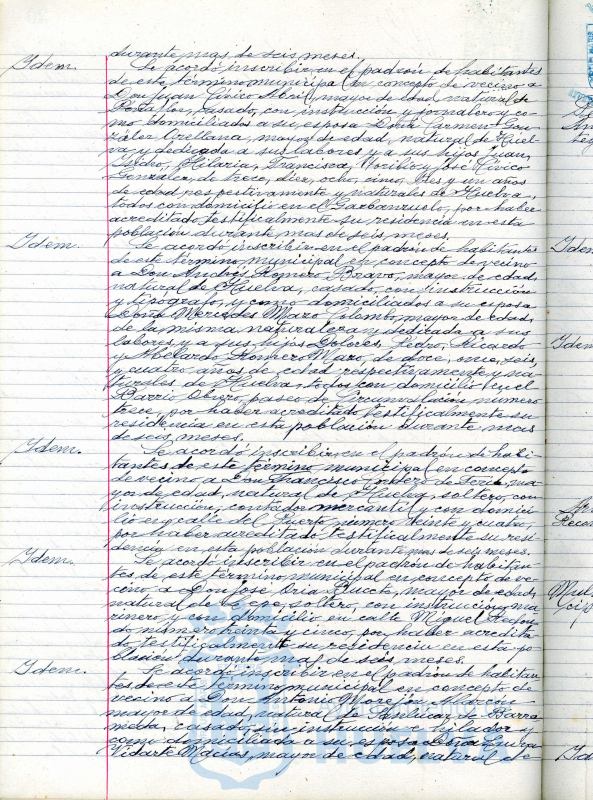 durante mas de seis meses.
Idem. Se acordó inscribir en el padrón de habitantes
de este término municipal en concepto de vecino a
Don Juan Cívico Abril, mayor de edad, natural de
casado, con instrucción y jornalero y co-
mo domiciliados a su esposa Doña Carmen Gon-
zález Orellana, mayor de edad, natural de Huel-
va y dedicada a sus labores y a sus hijos Juan,
Isidro, Hilaria, Francisca, Toribio y José Cívico
González, de trece, diez, ocho, cinco, tres y un años
de edad respectivamente y naturales de Huelva,
todos con domicilio en el Garbanzuelo, por haber
acreditado testificalmente su residencia en esta
población durante mas de seis meses.
Idem. Se acordó inscribir en el padrón de habitantes
de este término municipal en concepto de vecino
a Don Andrés Romero Bravo, mayor de edad,
natural de Huelva, casado, con instrucción
y tipógrafo, y como domiciliados a su esposa
Doña Mercedes Mazo mayor de edad,
de la misma naturaleza y dedicada a sus
labores y a sus hijos Dolores, Pedro, Ricardo
y Abelardo Romero Mazo, de doce, once, seis,
y cuatro años de edad respectivamente y na-
turales de Huelva, todos con domicilio en el
Barrio Obrero, paseo de Circunvalación número
trece, por haber acreditado testificalmente su
residencia en esta población durante mas
de seis meses.
Idem. Se acordó inscribir en el padrón de habi-
tantes de este término municipal en concepto
de vecino a Don Francisco de Soria, ma-
yor de edad, natural de Huelva, soltero, con
instrucción, contador mercantil y con domici-
lio en calle del Puerto número veinte y cuatro,
por haber acreditado testificalmente su resi-
dencia en esta población durante mas de seis meses.
Idem. Se acordó inscribir en el padrón de habitan-
tes de este término municipal en concepto de ve-
cino a Don José Oria mayor de edad,
natural de Lepe, soltero, con instrucción, ma-
rinero y con domicilio en calle Miguel Redon-
do número treinta y cinco, por haber acredita-
do testificalmente su residencia en esta po-
blación durante mas de seis meses.
Idem. Se acordó inscribir en el padrón de habitan-
tes de este término municipal en concepto de
vecino a Don Antonio
mayor de edad, natural de Sanlúcar de Barra-
meda, casado, sin instrucción e hilador y
como domiciliada a su esposa Doña Luisa
Vidarte Macías, mayor de edad, natural de